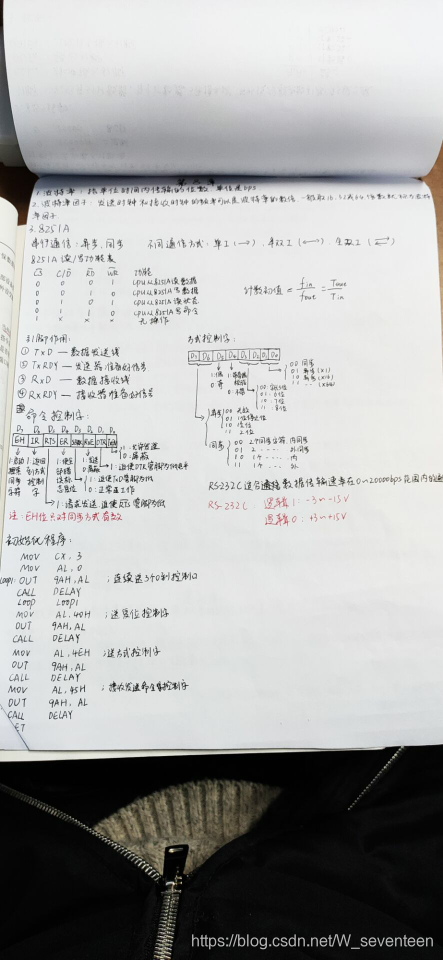 1. 波特率：指单位时间内传输的位数，单位是bps
2. 波特率因子：发送时钟和接收时钟的频率可以是波特率的数倍，一般取16,32或64倍
率因子.
3. 8251A
串行通信：异步、同步 不同通信方式：单工(→)，半双工(←→)，全双工(⇄)
8251A 读/写功能表
CS C/D RD WR 功能
0 0 0 1 CPU从8251A读数据
0 0 1 0 CPU向8251A写数据
0 1 0 1 CPU从8251A读状态
0 1 1 0 CPU向8251A写命令
1 × × × 无操作
计数初值 = fin/fout = Tout/Tin
引脚作用：
① TxD — 数据发送线
② TxRDY — 发送器准备好信号
③ RxD — 数据接收线
④ RxRDY — 接收器准备好信号
方式控制字：
D7 D6 D5 D4 D3 D2 D1 D0
00 同步
01 异步 (×1)
10 异步 (×16)
11 (×64)
00: 5位
01: 6位
10: 7位
11: 8位
异步
01 1位
10
11 2位
同步
00 2个同步字符, 内同步
01 2 外同步
10 1 内
11 1 外
命令控制字：
D7 D6 D5 D4 D3 D2 D1 D0
EH IR RTS ER SBRK RxE DTR TxEN
1: 允许发送
0: 屏蔽
0: 正常工作
注：EH位只对同步方式有效
RS-232C适合数据传输速率在0~20000bps范围内的通
RS-232C 逻辑1：-3~-15V
逻辑0：+3~+15V
初始化程序：
MOV CX, 3
MOV AL, 0
LOOP1: OUT 9AH, AL ；连续送3个0到控制口
CALL DELAY
LOOP LOOP1
MOV AL, 40H ；送复位控制字
OUT 9AH, AL
CALL DELAY
MOV AL, 4EH ；送方式控制字
OUT 9AH, AL
CALL DELAY
MOV AL, 45H
OUT 9AH, AL
CALL DELAY
ET
https://blog.csdn.net/W_seventeen